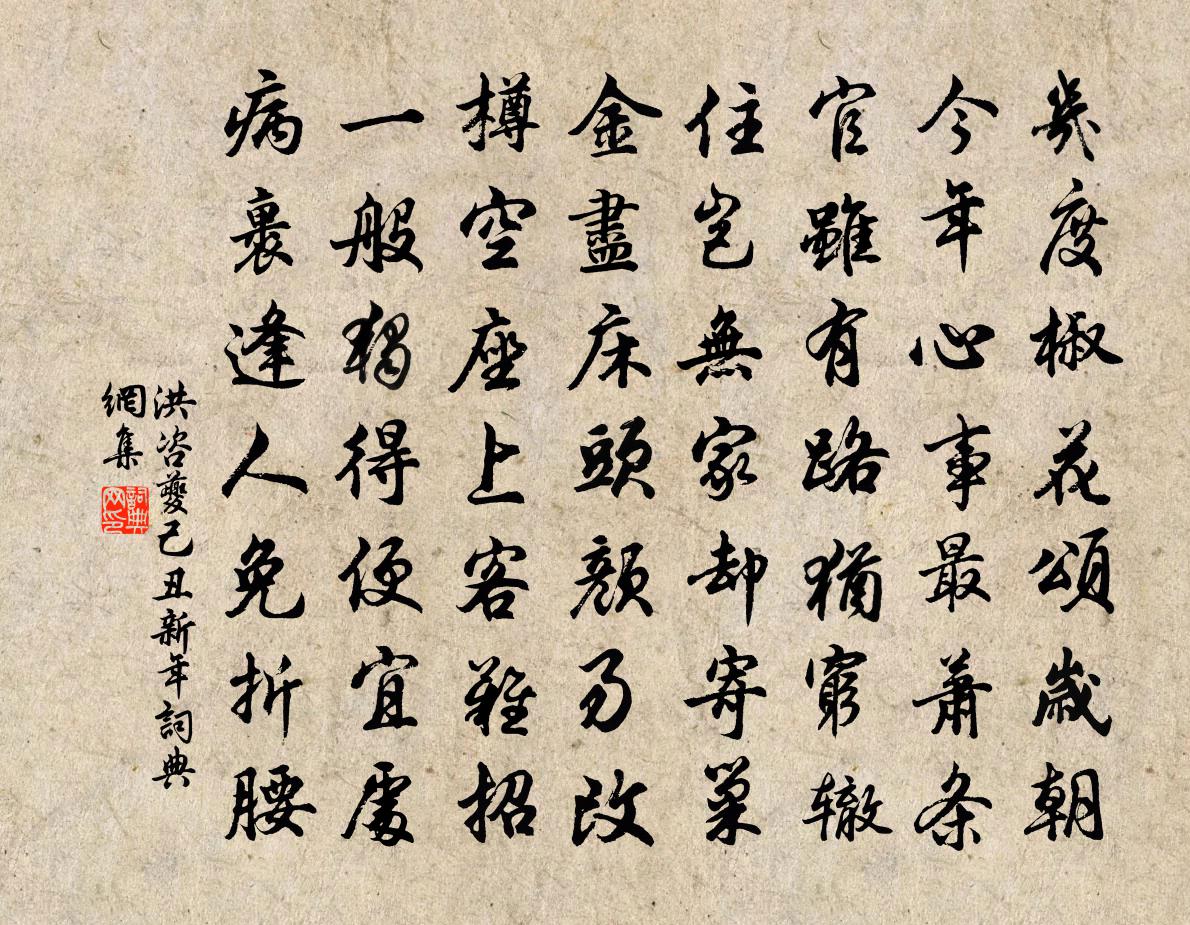 幾度椒花頌歲朝
今年心事最蕭条
官雖有路猶窮辙
住豈無家却寄巢
金盡床頭顏易改
樽空座上客難招
一般獨得便宜處
病裏逢人免折腰
洪咨夔己丑新年詞典
網集
詞典網印